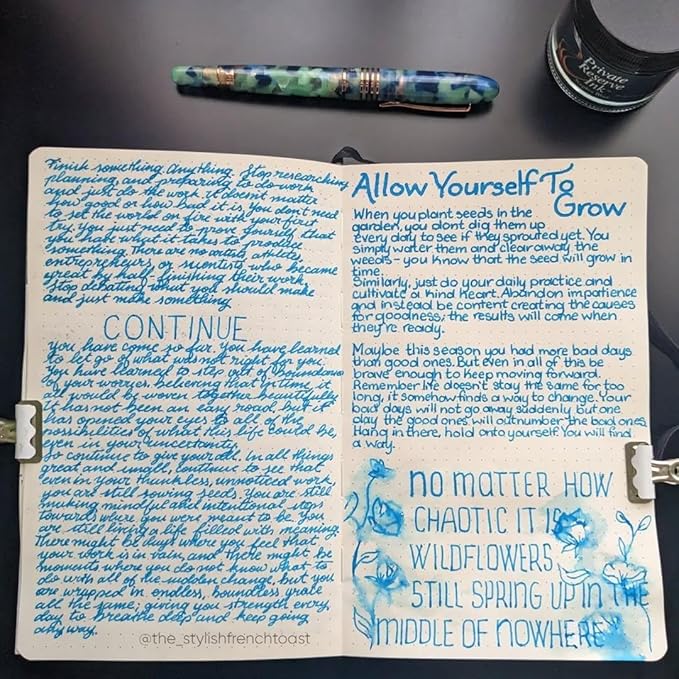 Private
Reserve
Ink
Finish something. Anything. Stop researching,
planning, and preparing to do work
and just do the work. It doesn't matter
how good or how bad it is. You don't need
to set the world on fire with your first
try. You just need to prove yourself that
you have what it takes to produce
something. There are no artists, athletes,
entrepreneurs, or scientists who became
great by half finishing their work.
Stop debating what you should make
and just make something.
CONTINUE
You have come so far. You have learned
to let go of what was not right for you.
You have learned to step out of boundaries
of your worries, believing that in time it
all would be woven together beautifully.
It has not been an easy road, but it
has opened your eyes to all of the
possibilities of what this life could be,
even in your uncertainty.
So continue to give your all. In all things
great and small, continue to see that
even in your thankless, unnoticed work,
you are still sowing seeds. You are still
making mindful and intentional steps
towards where you were meant to be. You
are still living a life filled with meaning.
There might be days where you feel that
your work is in vain, and there might be
moments where you do not know what to
do with all of the sudden change, but you
are wrapped in endless, boundless grace
all the same; giving you strength every
day to breathe deep and keep going
any way.
@the_stylishfrenchtoast
Allow Yourself To
Grow
When you plant seeds in the
garden, you don't dig them up
every day to see if they sprouted yet. You
simply water them and clear away the
weeds - you know that the seed will grow in
time.
Similarly, just do your daily practice and
cultivate a kind heart. Abandon impatience
and instead be content creating the causes
for goodness; the results will come when
they're ready.
Maybe this season you had more bad days
than good ones. But even in all of this be
brave enough to keep moving forward.
Remember life doesn't stay the same for too
long, it somehow finds a way to change. Your
bad days will not go away suddenly but one
day the good ones will outnumber the bad ones.
Hang in there, hold onto yourself. You will find
a way.
NO MATTER HOW
CHAOTIC IT IS
WILDFLOWERS
STILL SPRING UP IN THE
MIDDLE OF NOWHERE